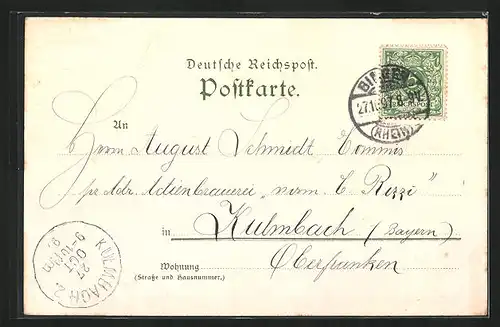 Deutsche Reichspost.
Postkarte.
BINGEN
27.10.97.
(RHEIN)
An
Herrn August Schmidt, Commis
pr Adr. Actienbrauerei „vorm. C. Rizzi"
in Kulmbach (Bayern)
Oberfranken
Wohnung
(Straße und Hausnummer.)
KULMBACH 2
27
OCT